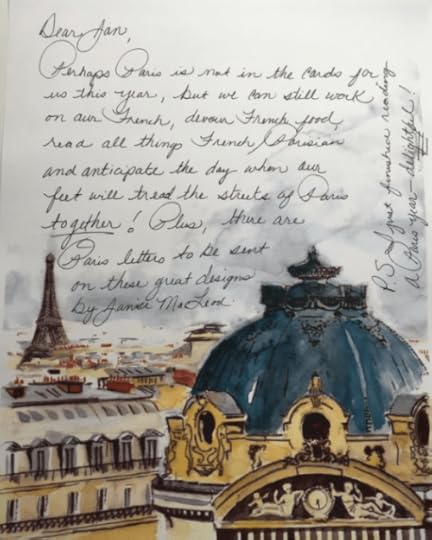 Dear Jan,
Perhaps Paris is not in the cards for
us this year, but we can still work
on our French, devour French food,
read all things French/Parisian
and anticipate the day when our
feet will tread the streets of Paris
together! Plus, there are
Paris letters to be sent
on these great designs
by Janice MacLeod.
P.S. I just finished reading
A Paris Year - delightful!